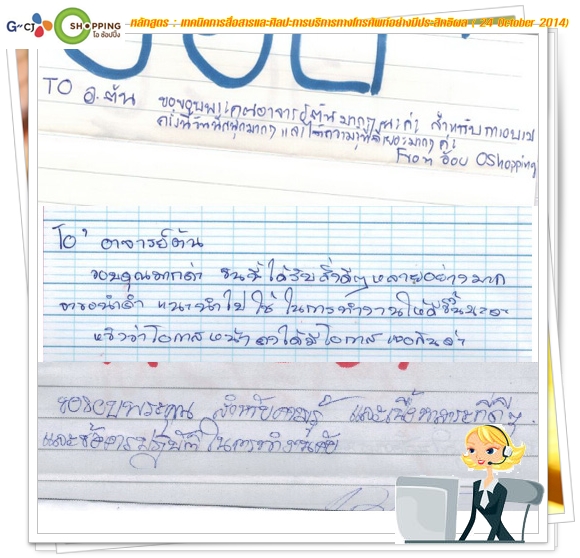 G"CJ O SHOPPING โอ ช้อปปิ้ง
หลักสูตร : เทคนิคการสื่อสารและศิลปะการบริการทางโทรศัพท์อย่างมีประสิทธิผล ( 24 October 2014)
TO อ.ต้น ขอขอบพระคุณอาจารย์ต้นมากๆ นะค่ะ สำหรับการอบรม
ครั้งนี้ สนุกมากๆ และได้ความรู้เยอะมากๆ ค่ะ
From OShopping
To' อาจารย์ต้น
ขอบคุณมากค่ะ วันนี้ได้รับสิ่งดีๆ หลายอย่างมาก
จะขอนำคำแนะนำไปใช้ในการทำงานให้ดีขึ้นนะคะ
หวังว่าโอกาสหน้าคงได้มีโอกาสเจอกันค่ะ
ขอขอบพระคุณ สำหรับ และเนื้อหาสาระที่ดีๆ
และ ปฏิบัติ ในการทำงาน